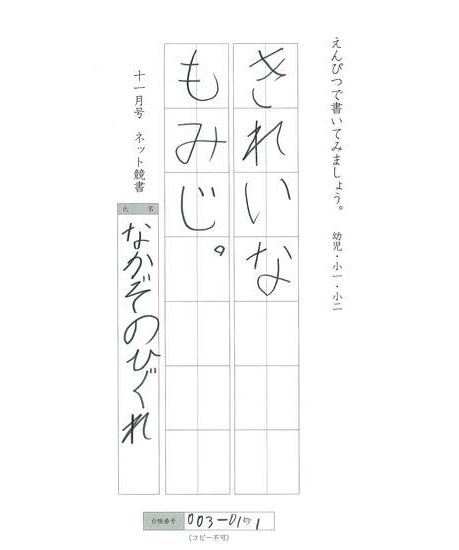 えんぴつで書いてみましょう。 幼児・小一・小二
きれいな
もみじ。
十一月号 ネット競書
氏名
なかぞのひぐれ
会員番号 003-0151
(コピー不可)